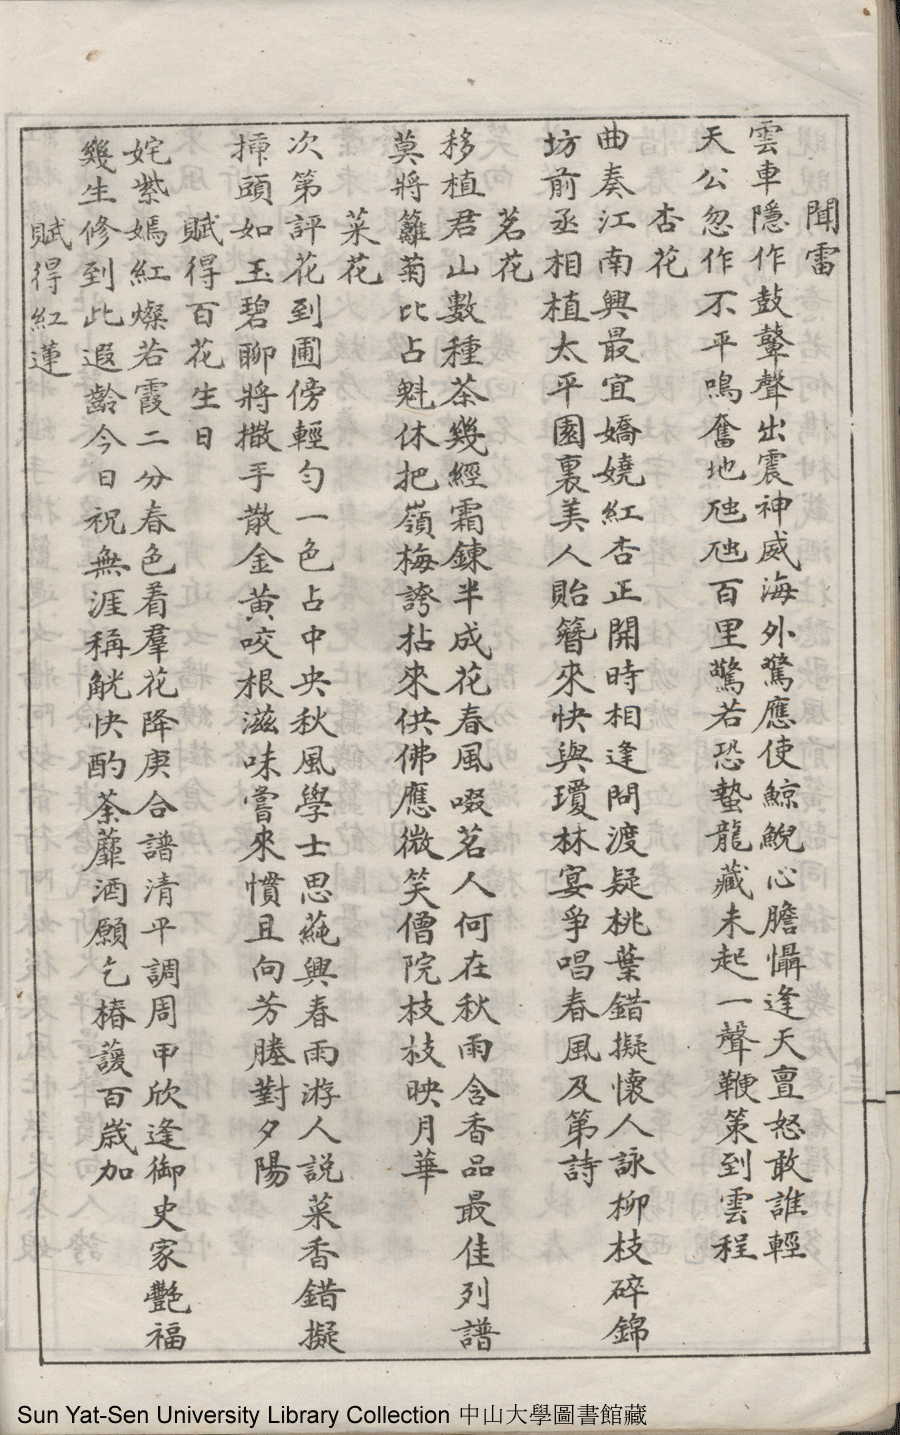 聞雷
雲車隱作鼓鼙聲出震神威海外驚應使鯨鯢心膽懾逢天亶怒敢誰輕
天公忽作不平鳴奮地虺虺百里驚若恐蟄龍藏未起一聲鞭策到雲程
杏花
曲奏江南興最宜嬌嬈紅杏正開時相逢問渡疑桃葉錯擬懷人詠柳枝碎錦
坊前丞相植太平園裏美人貽簪來快與瓊林宴爭唱春風及第詩
茗花
移植君山數種茶幾經霜鍊半成花春風啜茗人何在秋雨含香品最佳列譜
莫將籬菊比占魁休把嶺梅誇拈來供佛應微笑僧院枝枝映月華
菜花
次第評花到圃傍輕勻一色占中央秋風學士思蒓興春雨游人說菜香錯擬
插頭如玉碧聊將撒手散金黃咬根滋味嘗來慣且向芳塍對夕陽
賦得百花生日
姹紫嫣紅燦若霞二分春色看羣花降庚合譜清平調周甲欣逢御史家艷福
幾生修到此遐齡今日祝無涯稱觥快酌荼蘼酒願乞椿蘐百歲加
賦得紅蓮
Sun Yat-Sen University Library Collection 中山大學圖書館藏